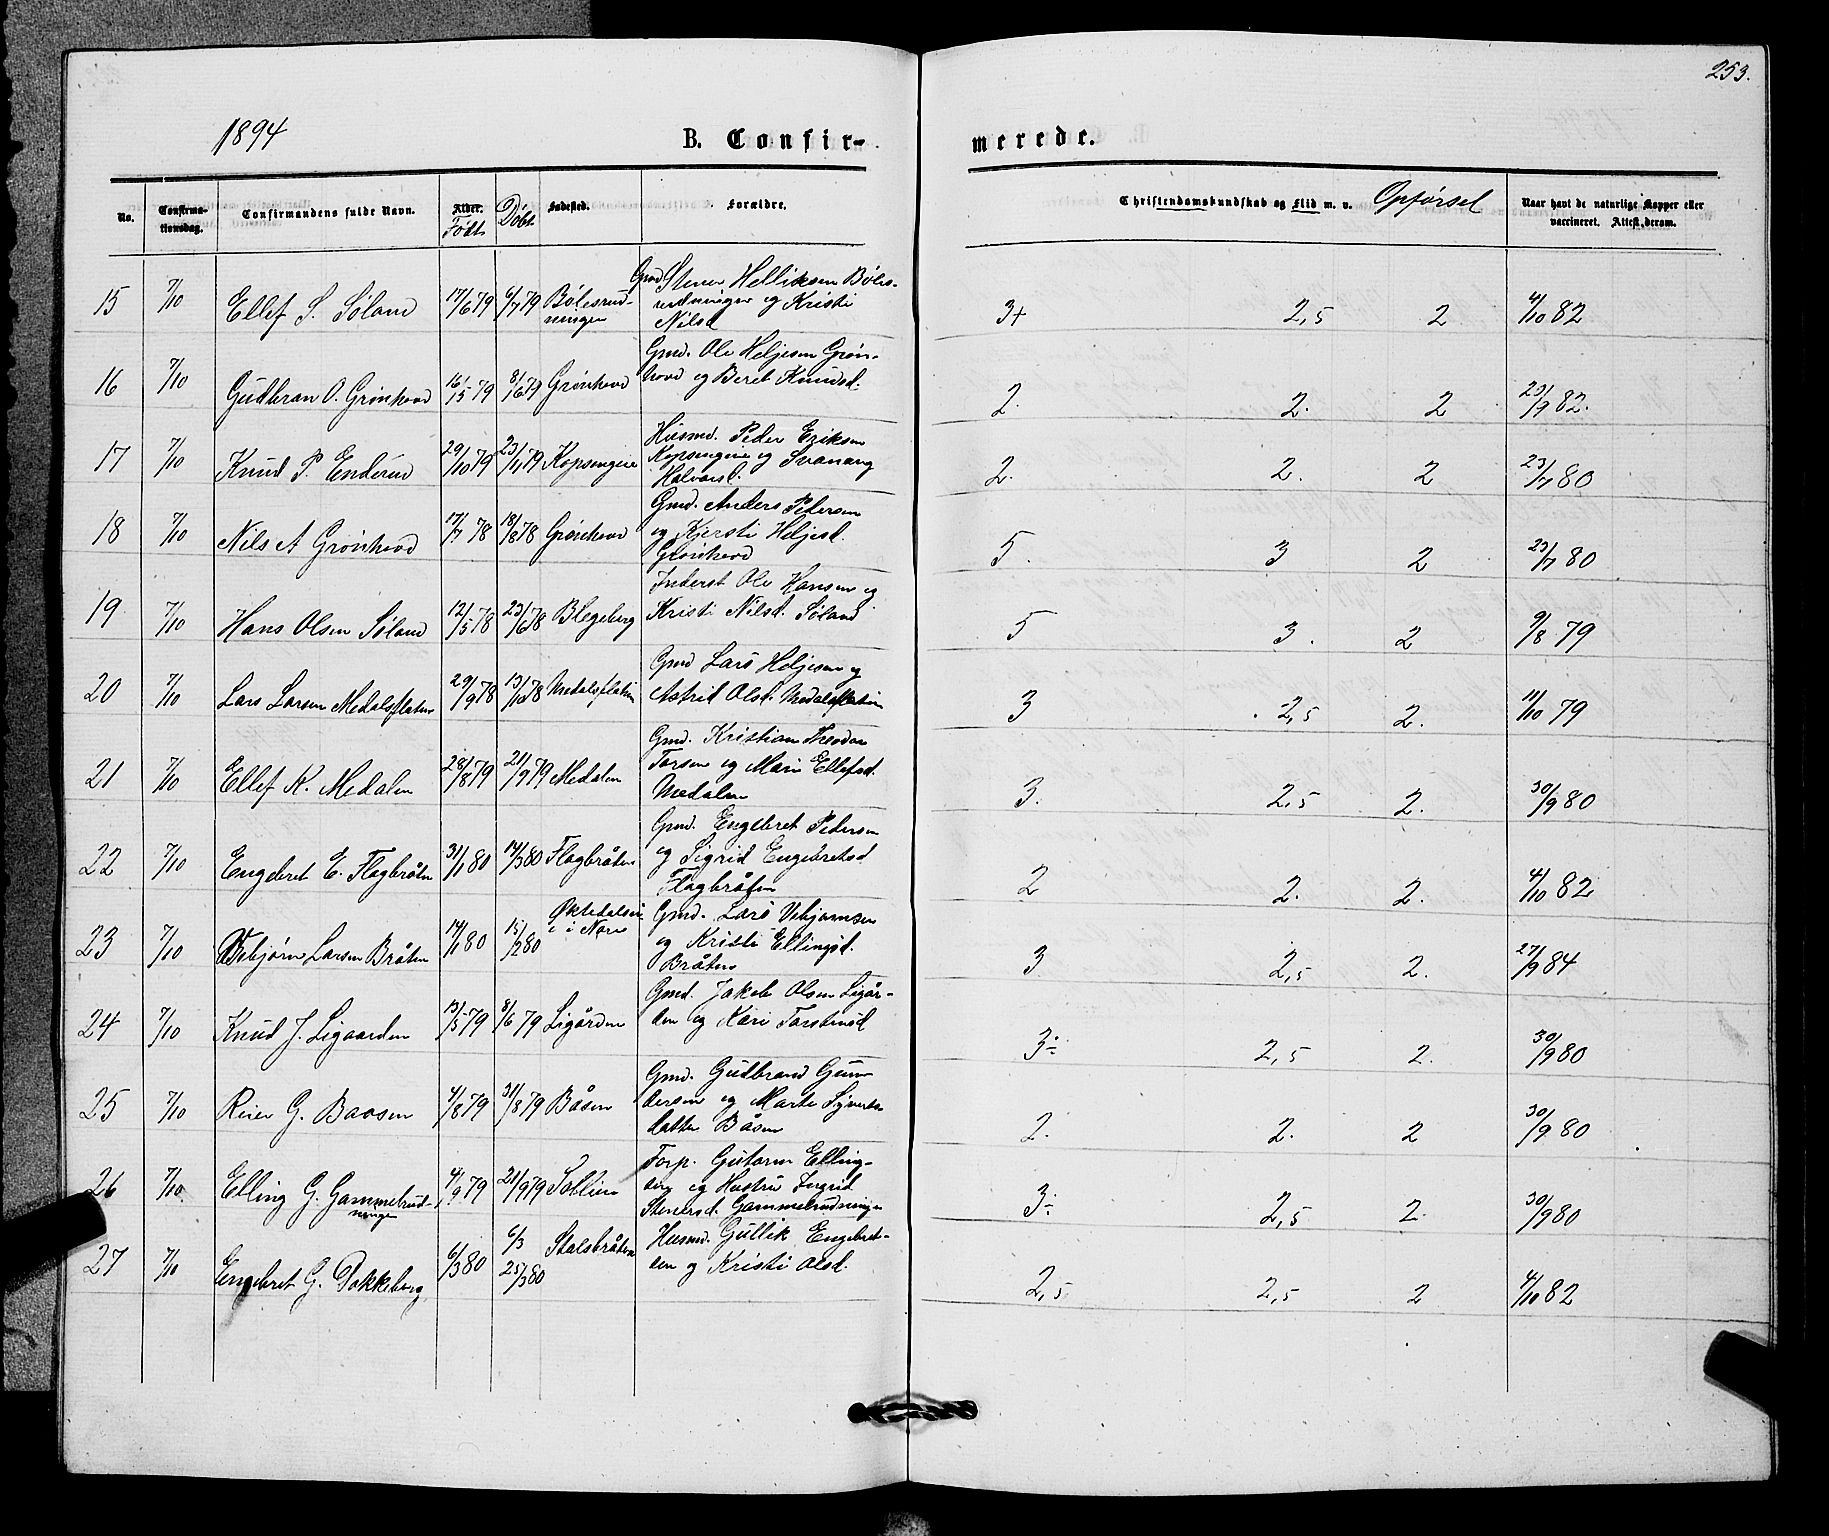 253.
1894
B. Confir-
merede.
No.
Confirma-
tionsdag.
Confirmandens fulde Navn.
Alder.
Født
Døbt
Fødested.
Forældre.
Christendomskundskab og Flid m. v. Opførsel
Naar havt de naturlige Kopper eller
vaccineret. Attest derom.
15 7/10 Ellef S. Søland 17/6 79 6/7 79 Bølesrud-
ningen
Gmd Stener Helliksen Bøles-
rudningen og Kristi
Nilsd
3+ 2,5 2 4/10 82
16 7/10 Gudbran O. Grønhovd 16/5 79 8/6 79 Grønhovd
Gmd. Ole Heljesen Grøn-
hovd og Beret Knudsd.
2. 2. 2 23/9 82.
17 7/10 Knud P. Enderud 29/10 79 23/11 79 Kopsengeie
Husmd. Peder Eriksen
Kopsengeie og Svanaug
Halvorsd.
2. 2. 2 23/7 80
18 7/10 Nils A Grønhovd 17/7 78 18/8 78 Grønhovd
Gmd. Anders Pedersen
og Kjersti Heljesd.
Grønhovd
5. 3 2 23/7 80
19 7/10 Hans Olsen Søland 12/5 78 23/6 78 Blegeberg
Inderst Ole Hansen og
Kristi Nilsd. Søland
5 3. 2 9/8 79
20 7/10 Lars Larsen Medalsflaten 29/9 78 13/10 78 Medalsflaten
Gmd Lars Heljesen og
Astrid Olsd. Medalsflaten
3 2,5 2. 11/10 79
21 7/10 Ellef K. Medalen 28/8 79 21/9 79 Medalen
Gmd. Kristian Theodor
Torsen og Mari Ellefsd.
Medalen
3. 2,5 2. 30/9 80
22 7/10 Engebret E. Flagbråten 31/1 80 14/3 80 Flagbråten
Gmd. Engebret Pedersen
og Sigrid Engebretsd
Flagbråten
2 2. 2. 4/10 82
23 7/10 Vebjørn Larsen Bråten 14/1 80 15/2 80 Øktedalsei
e i Nore
Gmd. Lars Vebjørnsen
og Kristi Ellingsd.
Bråten
3 2,5 2. 27/9 84
24 7/10 Knud J. Ligaarden 13/5 79 8/6 79 Ligården
Gmd. Jakob Olsen Ligår-
den og Kari Torstensd
3÷ 2,5 2. 30/9 80
25 7/10 Reier G. Baasen 4/8 79 31/8 79 Båsen
Gmd. Gudbrand Gun-
dersen og Marte Syverts-
datter Båsen
2. 2. 2 30/9 80
26 7/10 Elling G. Gammelrud-
ningen 4/9 79 21/9 79 Sollien
Forp. Gutorm Elling-
sen og Hustru Ingrid
Stenersd. Gammelrudningen
3÷ 2,5 2. 30/9 80
27 7/10 Engebret G. Dokkeberg 6/3 80 6/3
25/3 80 Stalsbråten
Husmd. Gullik Engebret-
sen og Kristi Olsd.
2,5 2,5 2 4/10 82